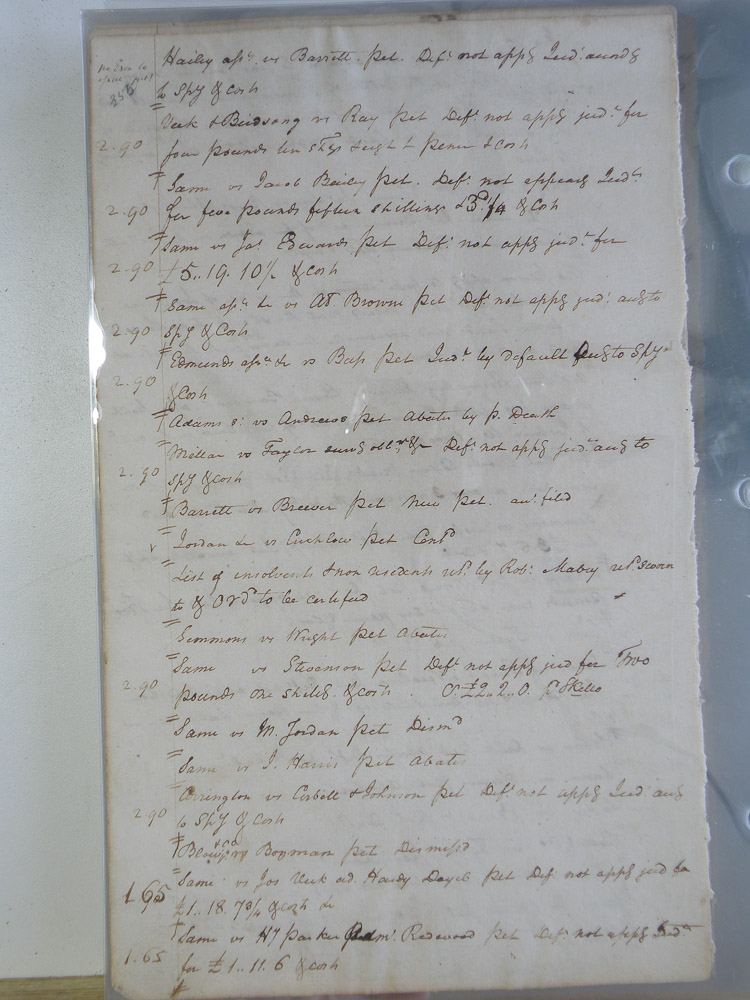 Hailey asse vs Barrett. Pet. Deft not appg Jud: accordg
to Spy & Costs
256
Birdsong vs Ray Pet Deft not appg judt for
2.90 four pounds ten & eight pence & Costs
Same vs Jacob Bailey Pet. Deft not appearg Judt
2.90 for five pounds fifteen shillings & 3d 1/4 & Costs
Same vs Jas Edwards Pet Deft not appg judt for
2.90 £5..19.10½ & Costs
Same asse &c vs At. Browne Pet Deft not appg jud: accg to
2.90 Spy & Costs
Edmunds asse &c vs Bass Pet Judt by default accg to Spy
2.90 & Costs
Adams vs Andrews Pet Abates by p. Death
vs Taylor Deft not appg judt accg to
2.90 Spy & Costs
Barrett vs Brewer Pet New Pet. filed
Jordan &c vs Pet Contd
List of insolvents & non residents retd by Robt Mabry retd sworn
to & Ord to be certified
Simmons vs Wright Pet Abates
Same vs Stevenson Pet Deft not appg jud for Two
2.90 pounds one shillg & Costs. Cr £2..2..0.
Same vs M. Jordan Pet Dismd
Same vs J. Harris Pet Abates
Arrington vs Corbell & Johnson Pet Deft not appg Jud accg
2.90 to Spy & Costs
& Co vs Boyman Pet Dismissd
Same vs Jos Hardy Pet Deft not appg jud for
1.65 £1..18.7¾ & Costs &c
Same vs Parker Admr Redwood Pet Deft not appg Judt
1.65 for £1..11.6 & Costs